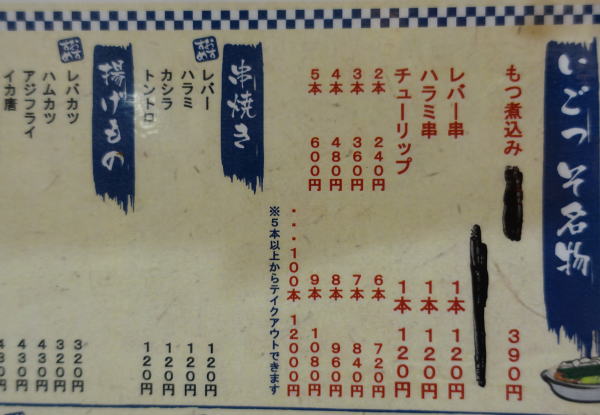 いごっそ名物
もつ煮込み 390円
レバー串 1本 120円
ハラミ串 1本 120円
チューリップ 1本 120円
2本 240円 6本 720円
3本 360円 7本 840円
4本 480円 8本 960円
5本 600円 9本 1080円
・・・100本 12000円
※5本以上からテイクアウトできます
串焼き
おすすめ
レバー 120円
ハラミ 120円
カシラ 120円
トントロ 120円
揚げもの
おすすめ
レバカツ 320円
ハムカツ 320円
アジフライ 430円
イカ唐 430円